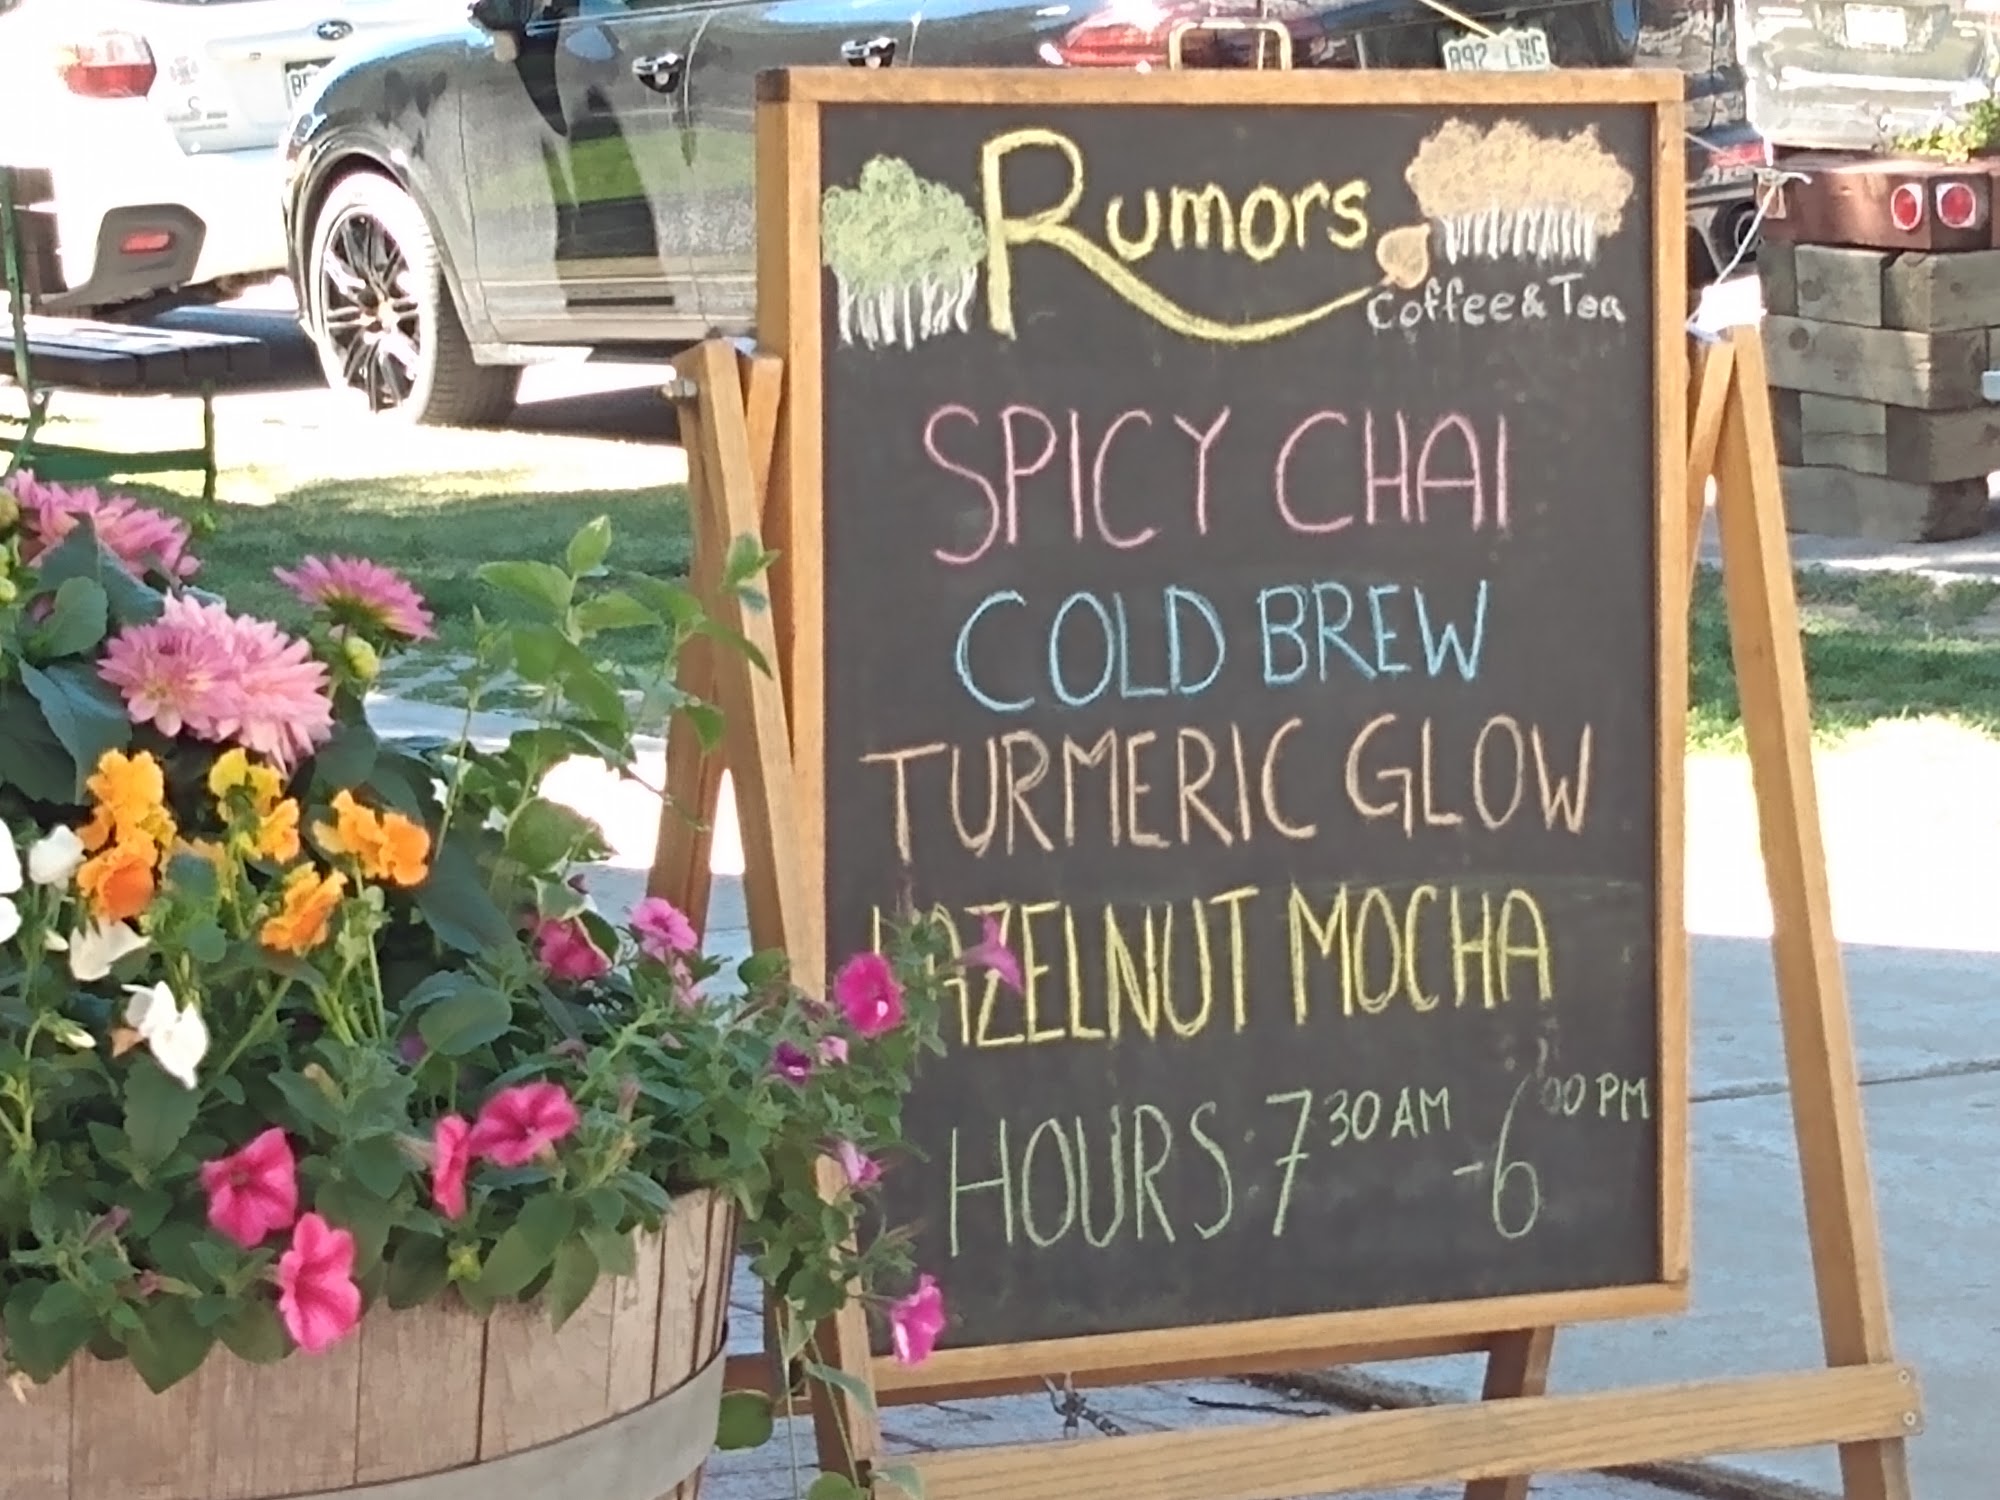 Rumors
Coffee & Tea
SPICY CHAI
COLD BREW
TURMERIC GLOW
HAZELNUT MOCHA
HOURS 7 30 AM - 6 00 PM
892 LNG